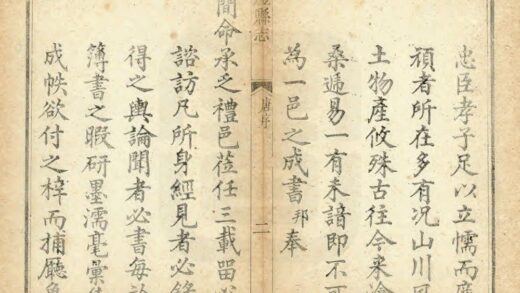 忠臣孝子足以立懦而廉
頑者所在多有况山川
土物產攸殊古往今來滄
桑遞易一有未諳即不可
為一邑之成書邦奉
縣志
唐序
二
簡命承乏禮邑蒞任三載留
諮訪凡所身經見者必錄
得之輿論聞者必書每於
簿書之暇研墨濡毫彙
成帙欲付之梓而捕廳